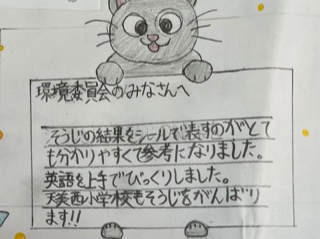 環境委員会のみなさんへ
そうじの結果をシールで表すのがとて
も分かりやすくて参考になりました。
英語を上手でびっくりしました。
天美西小学校もそうじをがんばり
ます!!